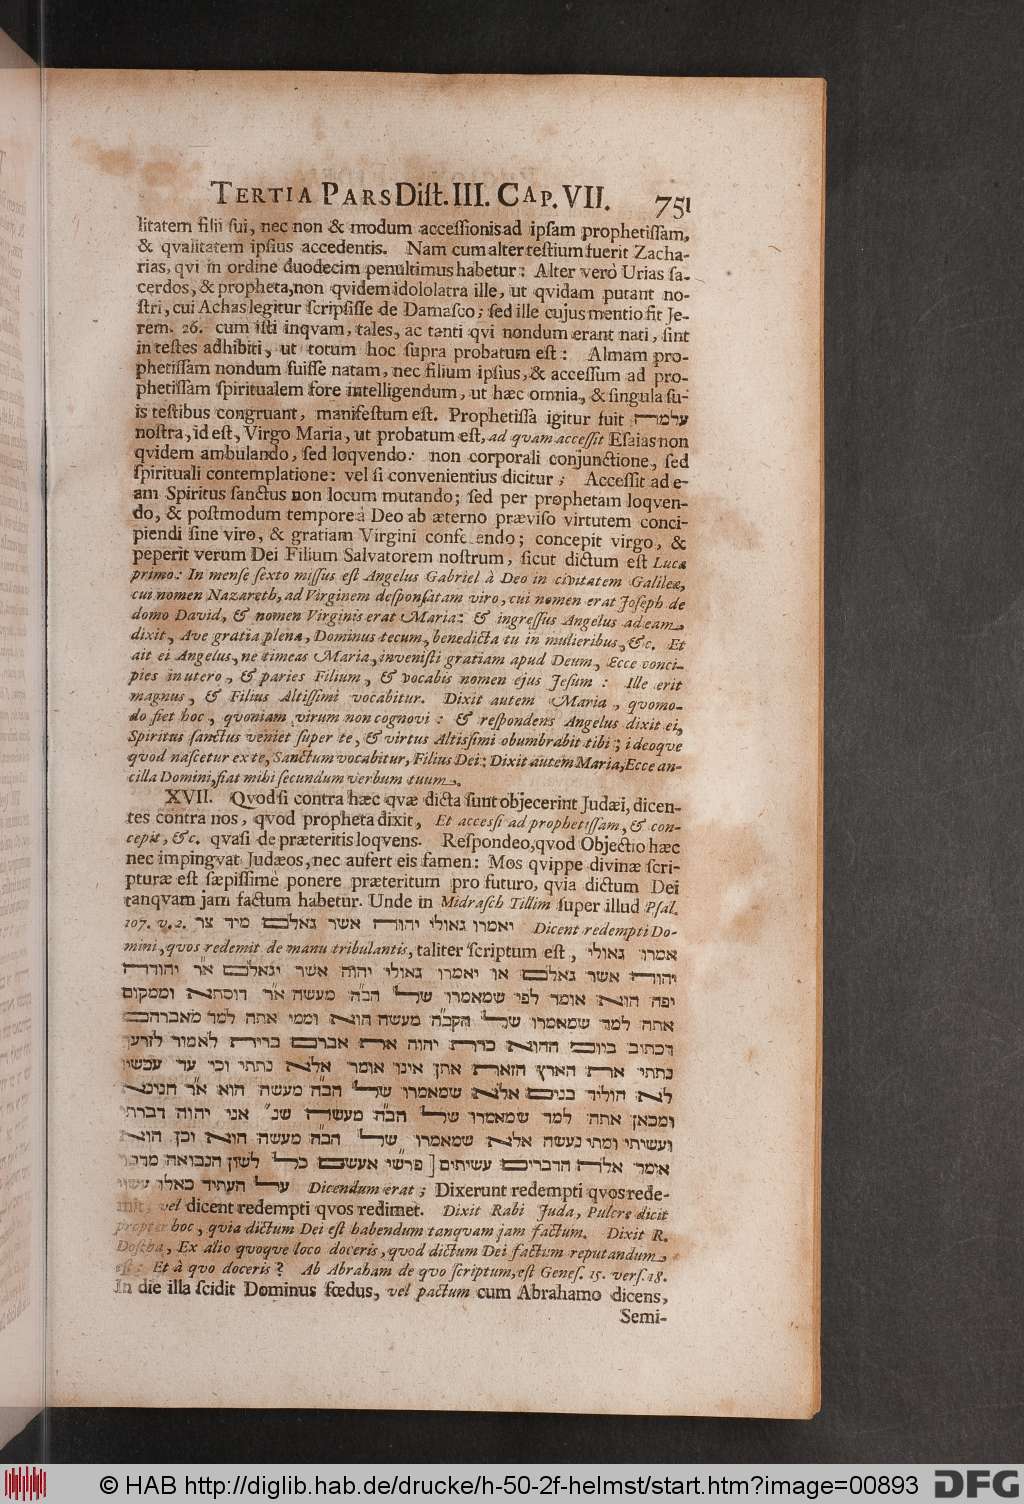 TERTIA PARS Diſt. III. CAP. VII. 751
litatem filii ſui, nec non & modum acceſſionis ad ipſam prophetiſſam,
& qvalitatem ipſius accedentis. Nam cum alter teſtium fuerit Zacha-
rias, qvi in ordine duodecim penultimus habetur: Alter verò Urias ſa-
cerdos, & propheta, non qvidem idololatra ille, ut qvidam putant no-
ſtri, cui Achas legitur ſcripſiſſe de Damaſco; ſed ille cujus mentio fit Je-
rem. 26. cum iſti inqvam, tales, ac tanti qvi nondum erant nati, ſint
in teſtes adhibiti, ut totum hoc ſupra probatum eſt: Almam pro-
phetiſſam nondum fuiſſe natam, nec filium ipſius, & acceſſum ad pro-
phetiſſam ſpiritualem fore intelligendum, ut hæc omnia, & ſingula ſu-
is teſtibus congruant, manifeſtum eſt. Prophetiſſa igitur fuit עלמה
noſtra, id eſt, Virgo Maria, ut probatum eſt, ad qvam acceſſit Eſaias non
qvidem ambulando, ſed loqvendo: non corporali conjunctione, ſed
ſpirituali contemplatione: vel ſi convenientius dicitur; Acceſſit ad e-
am Spiritus ſanctus non locum mutando; ſed per prophetam loqven-
do, & poſtmodum tempore à Deo ab æterno præviſo virtutem conci-
piendi ſine viro, & gratiam Virgini conferendo; concepit virgo, &
peperit verum Dei Filium Salvatorem noſtrum, ſicut dictum eſt Lucæ
primo: In menſe ſexto miſſus eſt Angelus Gabriel à Deo in civitatem Galileæ,
cui nomen Nazareth, ad Virginem deſponſatam viro, cui nomen erat Joſeph de
domo David, & nomen Virginis erat Maria: & ingreſſus Angelus ad eam
dixit, Ave gratia plena, Dominus tecum, benedicta tu in mulieribus, &c. Et
ait ei Angelus, ne timeas Maria, inveniſti gratiam apud Deum, Ecce conci-
pies in utero, & paries Filium, & vocabis nomen ejus Jeſum: Ille erit
magnus, & Filius Altiſſimi vocabitur. Dixit autem Maria, qvomo-
do fiet hoc, qvoniam virum non cognovi: & reſpondens Angelus dixit ei,
Spiritus ſanctus veniet ſuper te, & virtus Altiſſimi obumbrabit tibi; ideoqve
qvod naſcetur ex te, Sanctum vocabitur, Filius Dei: Dixit autem Maria, Ecce an-
cilla Domini, fiat mihi ſecundum verbum tuum.
XVII. Qvod ſi contra hæc qvæ dicta ſunt objecerint Judæi, dicen-
tes contra nos, qvod propheta dixit, Et acceſſi ad prophetiſſam, & con-
cepit, &c. qvaſi de præteritis loqvens. Reſpondeo, qvod Objectio hæc
nec impingvat Judæos, nec aufert eis famen: Mos qvippe divinæ ſcri-
pturæ eſt ſæpiſſimè ponere præteritum pro futuro, qvia dictum Dei
tanqvam jam factum habetur. Unde in Midraſch Tillim ſuper illud Pſal.
107. v. 2. יאמרו גאולי יהוה אשר גאלם מיד צר Dicent redempti Do-
mini, qvos redemit de manu tribulantis, taliter ſcriptum eſt, אמרו גאולי
יהוה אשר גאלם או יאמרו גאולי יהוה אשר יגאלם א״ר יהודה
יפה הוא אומר לפי שמאמרו של הב״ה מעשה א״ר דוסתא וממקום
אתה למד שמאמרו של הקב״ה מעשה הוא וממי אתה למד מאברהם
דכתיב ביום ההוא כרת יהוה את אברם ברית לאמור לזרעך
נתתי את הארץ הזאת אתן אינו אומר אלא נתתי וכי עד עכשיו
לא הוליד בנים אלא שמאמרו של הב״ה מעשה הוא א״ר חנינא
ומכאן אתה למד שמאמרו של הב״ה מעשה שנ״ אני יהוה דברתי
ועשיתי ומתי נעשה אלא שמאמרו של הב״ה מעשה הוא וכן הוא
אומר אלה הדברים עשיתים [פרש״י אעשם כל לשון הנבואה מדבר
על העתיד כאלו עשוי Dicendum erat; Dixerunt redempti qvos rede-
mit, vel dicent redempti qvos redimet. Dixit Rabi Juda, Pulcre dicit
propter hoc, qvia dictum Dei eſt habendum tanqvam jam factum. Dixit R.
Doſtha, Ex alio qvoqve loco doceris, qvod dictum Dei factum reputandum
eſt: Et à qvo doceris? Ab Abraham de qvo ſcriptum, eſt Geneſ. 15. verſ. 18.
In die illa ſcidit Dominus fœdus, vel pactum cum Abrahamo dicens,
Semi-
© HAB http://diglib.hab.de/drucke/h-50-2f-helmst/start.htm?image=00893
DFG